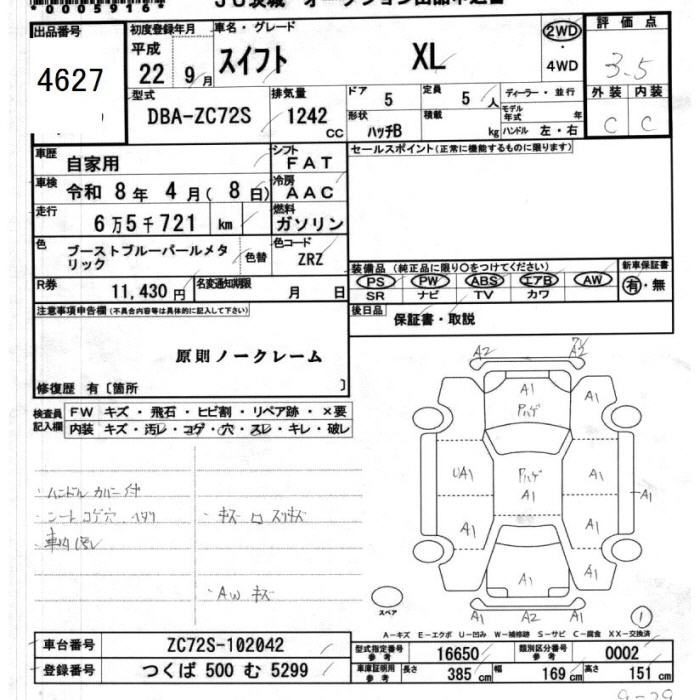 *0005916*
JU茨城 オークション出品申込書
出品番号
4627
初度登録年月
平成
22 9月
車名・グレード
スイフト XL
2WD
・
4WD
評価点
3.5
外装 内装
C C
型式
DBA-ZC72S
排気量
1242
CC
ドア
5
定員
5人
形状
ハッチB
積載
kg
ディーラー・並行
モデル年式 年
ハンドル 左・右
車歴
自家用
シフト
FAT
車検
令和 8年 4月( 8日)
冷房
AAC
走行
6万5千721 km
燃料
ガソリン
色
ブーストブルーパールメタリック
色替
色コード
ZRZ
R券
11,430円
名変通知期限
月 日
セールスポイント(正常に機能するものに限ります)
装備品(純正品に限り○をつけてください)
PS PW ABS エアB AW
SR ナビ TV カワ
新車保証書
有・無
後日品
保証書・取説
注意事項申告欄(不具合内容等は具体的に記入して下さい)
原則ノークレーム
修復歴 有〔箇所 〕
検査員記入欄
FW キズ・飛石・ヒビ割・リペア跡・×要
内装 キズ・汚レ・コゲ・穴・スレ・キレ・破レ
・ハンドル カバー付
・シート コゲ穴 ヘタリ
・車内汚レ
・キズ
・AW キズ
A2 A2
A1 A1
UA1 A1 A1 A1
A1 A1
A1 A1
A1 A2 A1
スペア
1
A-キズ E-エクボ U-凹み W-補修跡 S-サビ C-腐食 XX-交換済
車台番号
ZC72S-102042
登録番号
つくば 500 む 5299
型式指定番号
参考
16650
類別区分番号
参考
0002
車庫証明用
参考
長さ 385 cm 幅 169 cm 高さ 151 cm
9-29